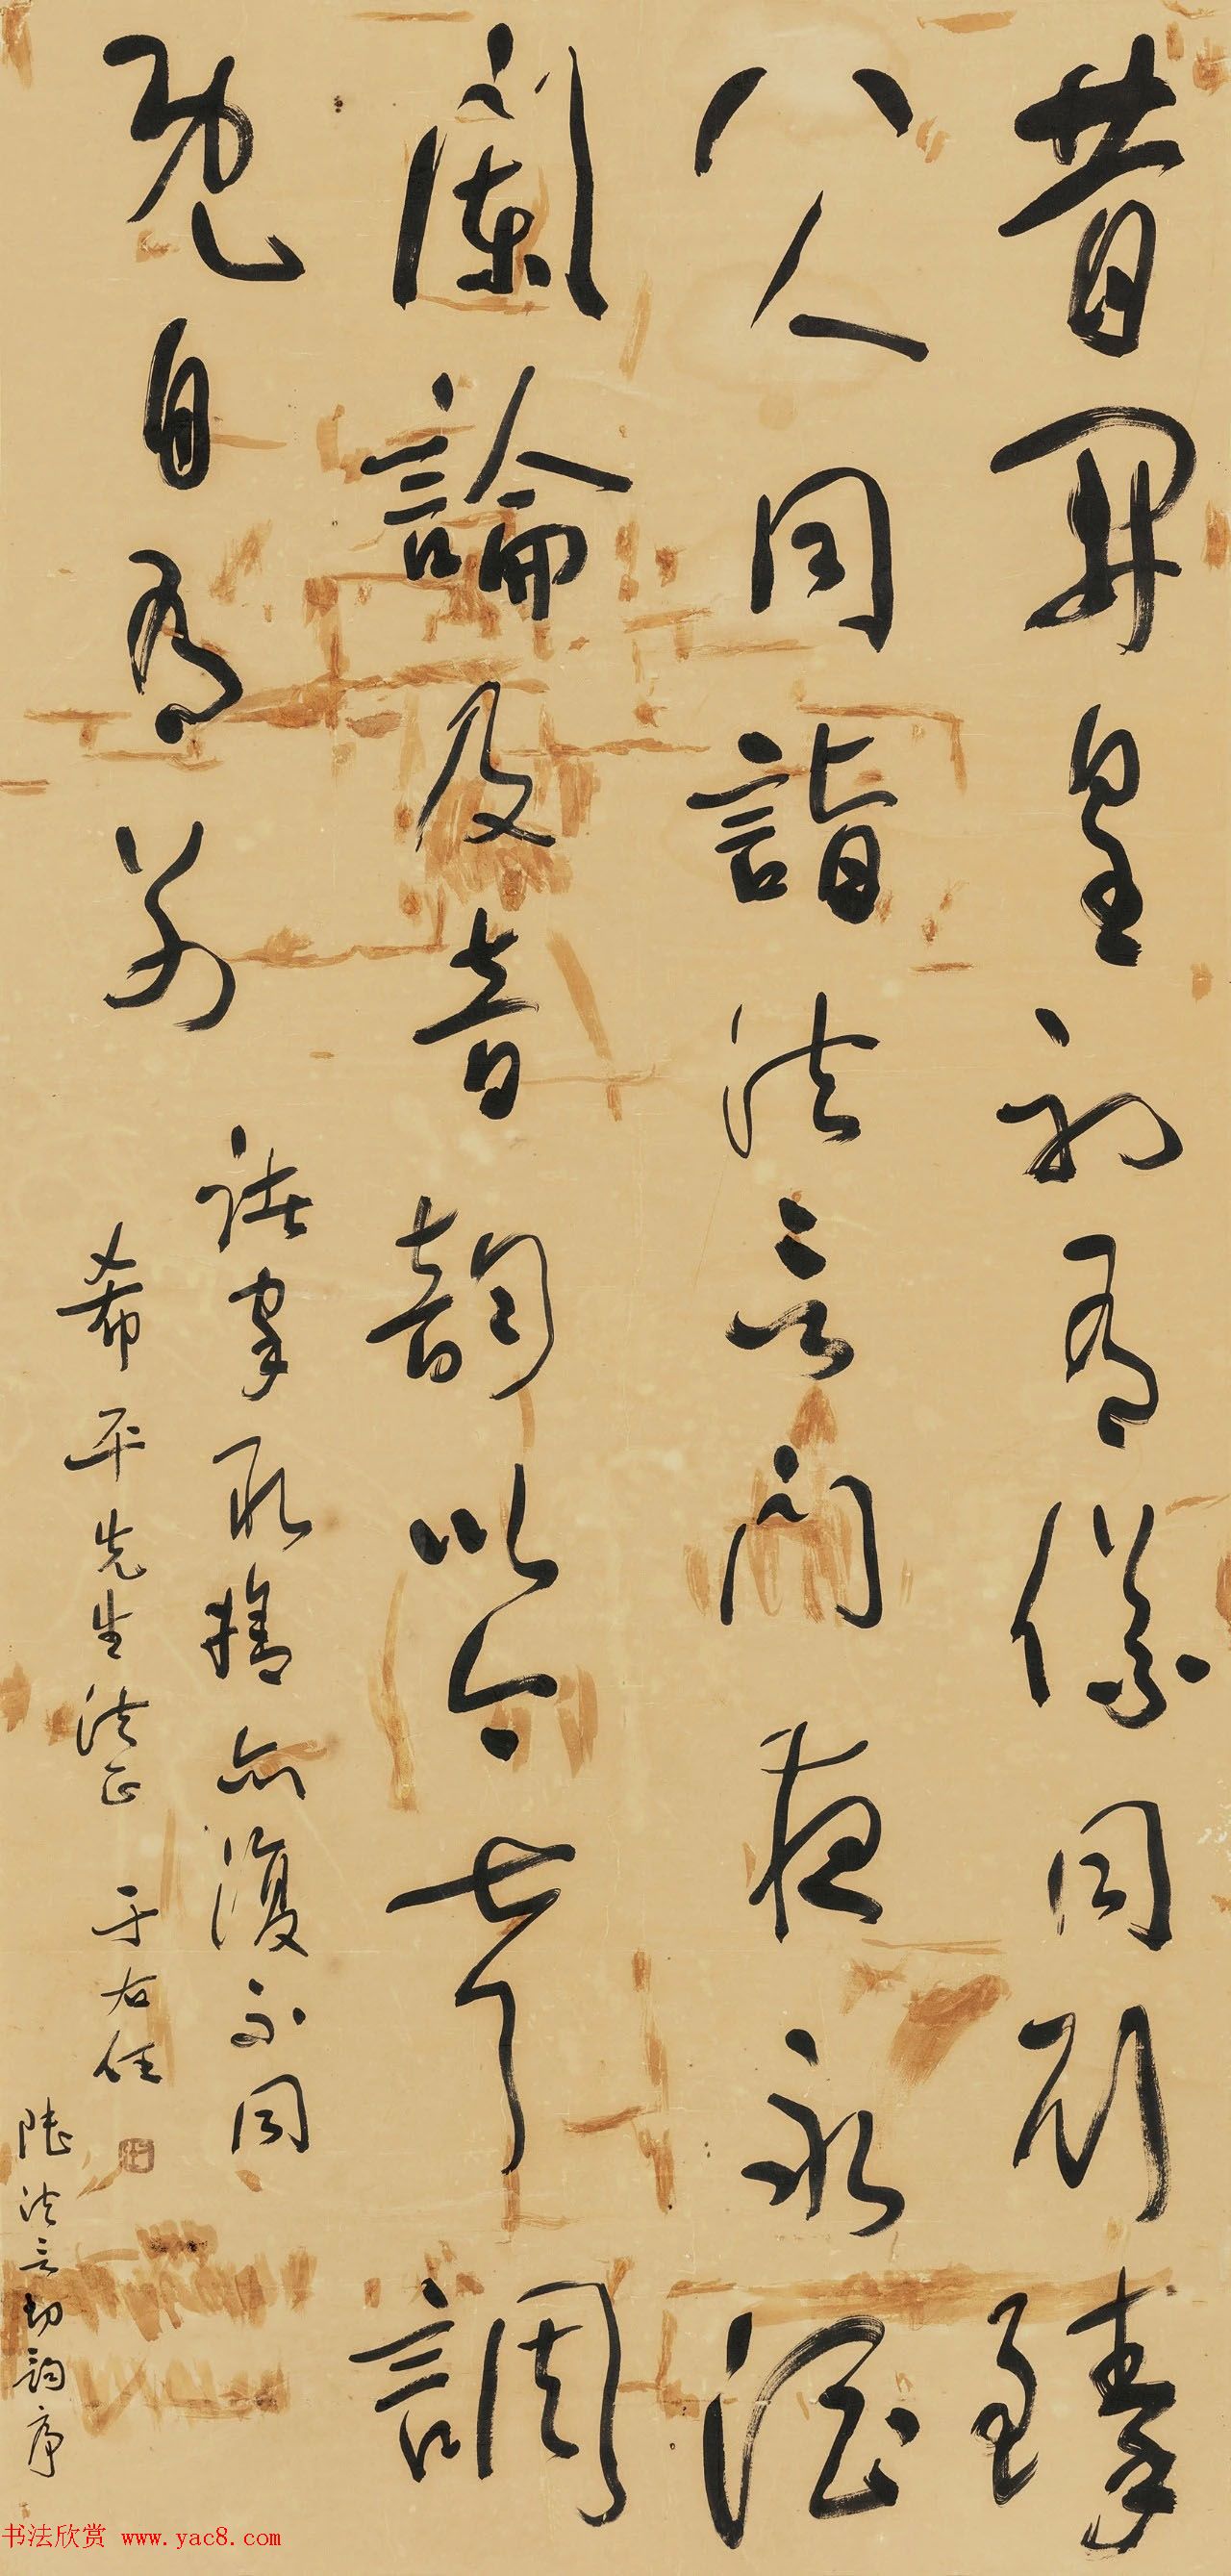 昔開皇初有儀同劉臻
八人同詣法言門夜永酒
闌論及音韻以今聲調
既自有別
諸家取捨亦復不同
希平先生法正 于右任
陸法言切韵序
书法欣赏 www.yac8.com